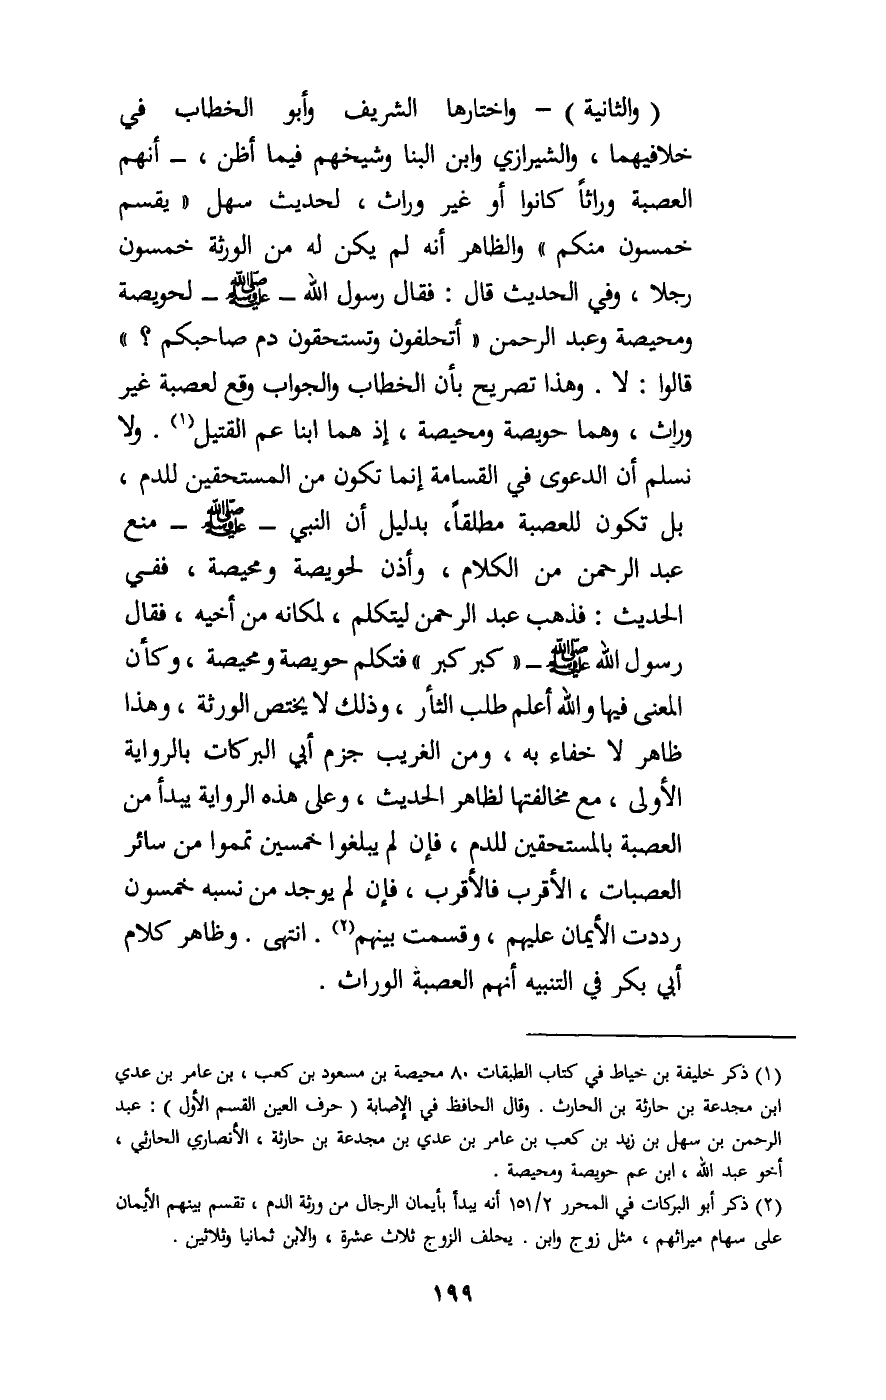 ( والثانية ) – واختارها الشريف وأبو الخطاب في
خلافيهما ، والشيرازي وابن البنا وشيخهم فيما أظن ، – أنهم
العصبة وراثاً كانوا أو غير وراث ، لحديث سهل « يقسم
خمسون منكم » والظاهر أنه لم يكن له من الورثة خمسون
رجلا ، وفي الحديث قال : فقال رسول الله – ﷺ – لحويصة
ومحيصة وعبد الرحمن « أتحلفون وتستحقون دم صاحبكم ؟ »
قالوا : لا . وهذا تصريح بأن الخطاب والجواب وقع لعصبة غير
وراث ، وهما حويصة ومحيصة ، إذ هما ابنا عم القتيل(١) . ولا
نسلم أن الدعوى في القسامة إنما تكون من المستحقين للدم ،
بل تكون للعصبة مطلقاً، بدليل أن النبي – ﷺ – منع
عبد الرحمن من الكلام ، وأذن لحويصة ومحيصة ، ففي
الحديث : فذهب عبد الرحمن ليتكلم ، لمكانه من أخيه ، فقال
رسول الله ﷺ – « كبر كبر » فتكلم حويصة ومحيصة ، وكأن
المعنى فيها والله أعلم طلب الثأر ، وذلك لا يختص الورثة ، وهذا
ظاهر لا خفاء به ، ومن الغريب جزم أبي البركات بالرواية
الأولى ، مع مخالفتها لظاهر الحديث ، وعلى هذه الرواية يبدأ من
العصبة بالمستحقين للدم ، فإن لم يبلغوا خمسين تمموا من سائر
العصبات ، الأقرب فالأقرب ، فإن لم يوجد من نسبه خمسون
رددت الأيمان عليهم ، وقسمت بينهم(٢) . انتهى . وظاهر كلام
أبي بكر في التنبيه أنهم العصبة الوراث .
(١) ذكر خليفة بن خياط في كتاب الطبقات ٨٠ محيصة بن مسعود بن كعب ، بن عامر بن عدي
ابن مجدعة بن حارثة بن الحارث . وقال الحافظ في الإصابة ( حرف العين القسم الأول ) : عبد
الرحمن بن سهل بن زيد بن كعب بن عامر بن عدي بن مجدعة بن حارثة ، الأنصاري الحارثي ،
أخو عبد الله ، ابن عم حويصة ومحيصة .
(٢) ذكر أبو البركات في المحرر ١٥١/٢ أنه يبدأ بأيمان الرجال من ورثة الدم ، تقسم بينهم الأيمان
على سهام ميراثهم ، مثل زوج وابن . يحلف الزوج ثلاث عشرة ، والابن ثمانيا وثلاثين .
١٩٩